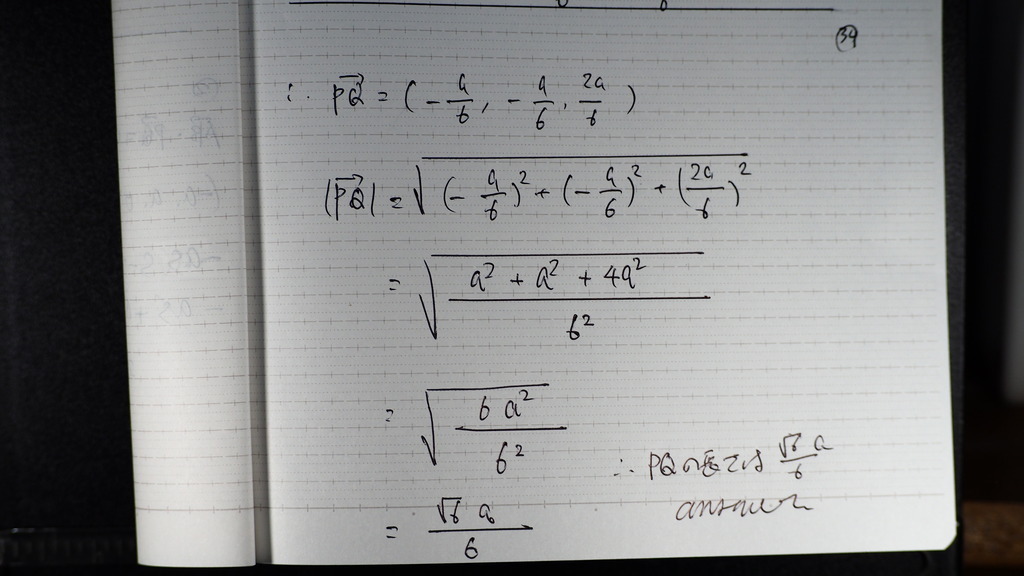 ㉞
∴ PQ→ = (-a/6, -a/6, 2a/6)
|PQ→| = √((-a/6)² + (-a/6)² + (2a/6)²)
= √((a² + a² + 4a²)/6²)
= √(6a²/6²)
∴ PQの長さは √6 a/6
answer
= √6 a/6